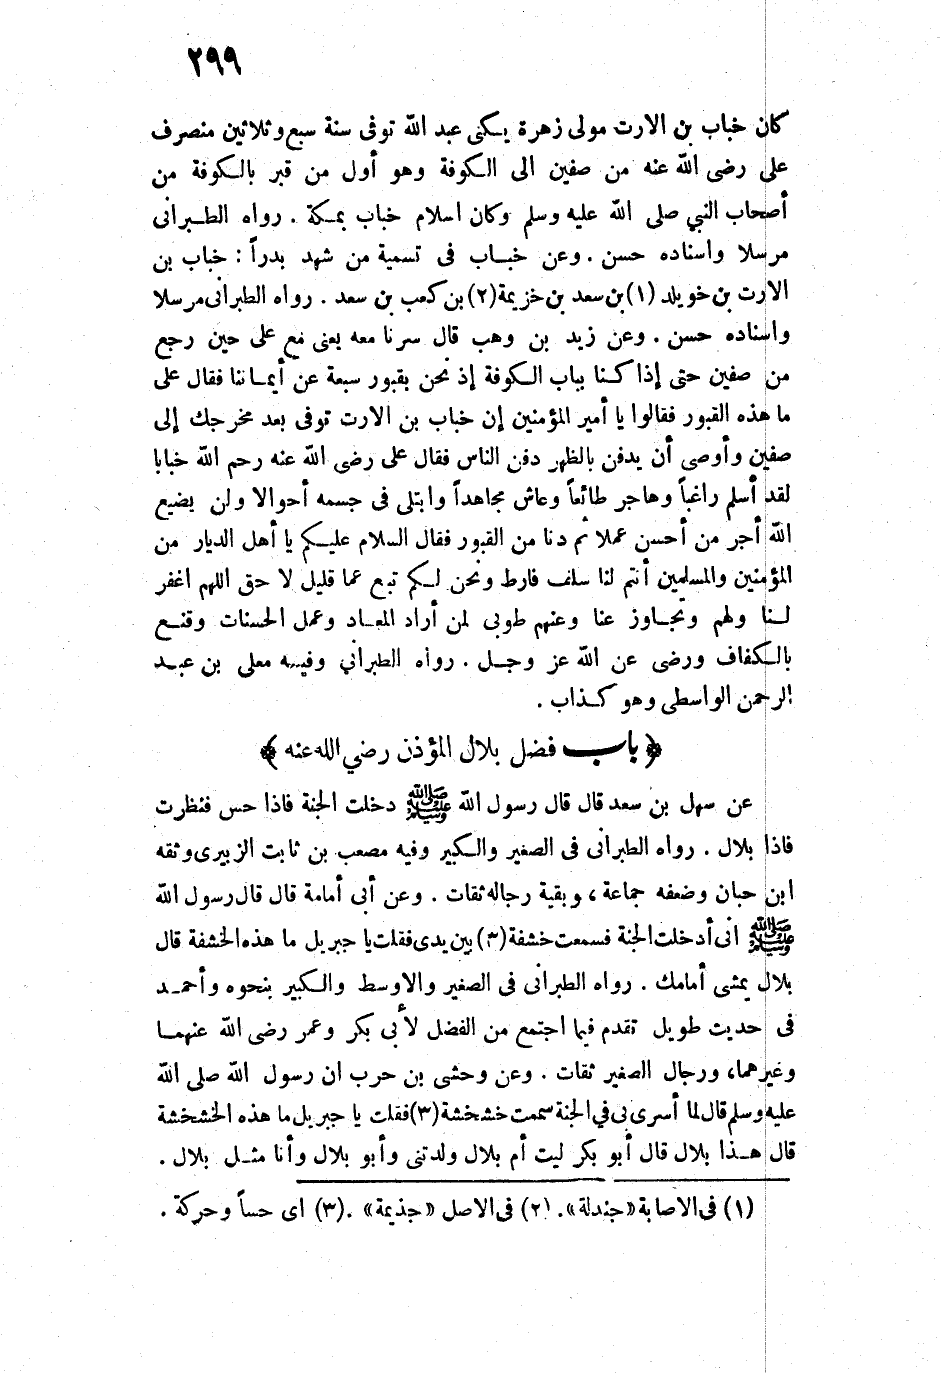 ٢٩٩
كان خباب بن الارت مولى زهرة يكنى عبد الله توفى سنة سبع وثلاثين منصرف
على رضى الله عنه من صفين الى الكوفة وهو أول من قبر بالكوفة من
أصحاب النبي صلى الله عليه وسلم وكان اسلام خباب بمكة . رواه الطبرانى
مرسلا واسناده حسن . وعن خباب فى تسمية من شهد بدراً : خباب بن
الارت بن خويلد (١) بن سعد بن خزيمة (٢) بن كعب بن سعد . رواه الطبرانى مرسلا
واسناده حسن . وعن زيد بن وهب قال سرنا معه يعنى مع على حين رجع
من صفين حتى إذا كنا بباب الكوفة إذ نحن بقبور سبعة عن أيماننا فقال على
ما هذه القبور فقالوا يا أمير المؤمنين إن خباب بن الارت توفى بعد مخرجك إلى
صفين وأوصى أن يدفن بالظهر دفن الناس فقال على رضى الله عنه رحم الله خبابا
لقد أسلم راغباً وهاجر طائعاً وعاش مجاهداً وابتلى فى جسمه أحوالا ولن يضيع
الله أجر من أحسن عملا ثم دنا من القبور فقال السلام عليكم يا أهل الديار من
المؤمنين والمسلمين أنتم لنا سلف فارط ونحن لكم تبع عما قليل لا حق اللهم اغفر
لنا ولهم وتجاوز عنا وعنهم طوبى لمن أراد المعاد وعمل الحسنات وقنع
بالكفاف ورضى عن الله عز وجل . رواه الطبراني وفيه معلى بن عبد
الرحمن الواسطى وهو كذاب .
﴿ باب فضل بلال المؤذن رضي الله عنه ﴾
عن سهل بن سعد قال قال رسول الله ﷺ دخلت الجنة فاذا حس فنظرت
فاذا بلال . رواه الطبرانى فى الصغير والكبير وفيه مصعب بن ثابت الزبيرى وثقه
ابن حبان وضعفه جماعة ، وبقية رجاله ثقات . وعن أبى أمامة قال قال رسول الله
ﷺ انى أدخلت الجنة فسمعت خشفة (٣) بين يدى فقلت يا جبريل ما هذه الخشفة قال
بلال يمشى أمامك . رواه الطبرانى فى الصغير والاوسط والكبير بنحوه وأحمد
فى حديث طويل تقدم فيما اجتمع من الفضل لأبى بكر وعمر رضى الله عنهما
وغيرهما، ورجال الصغير ثقات . وعن وحشى بن حرب ان رسول الله صلى الله
عليه وسلم قال لما أسرى بى في الجنة سمعت خشخشة (٣) فقلت يا جبريل ما هذه الخشخشة
قال هذا بلال قال أبو بكر ليت أم بلال ولدتنى وأبو بلال وأنا مثل بلال .
(١) فى الاصابة «جندلة». (٢) فى الاصل «جذيمة» . (٣) اى حساً وحركة .